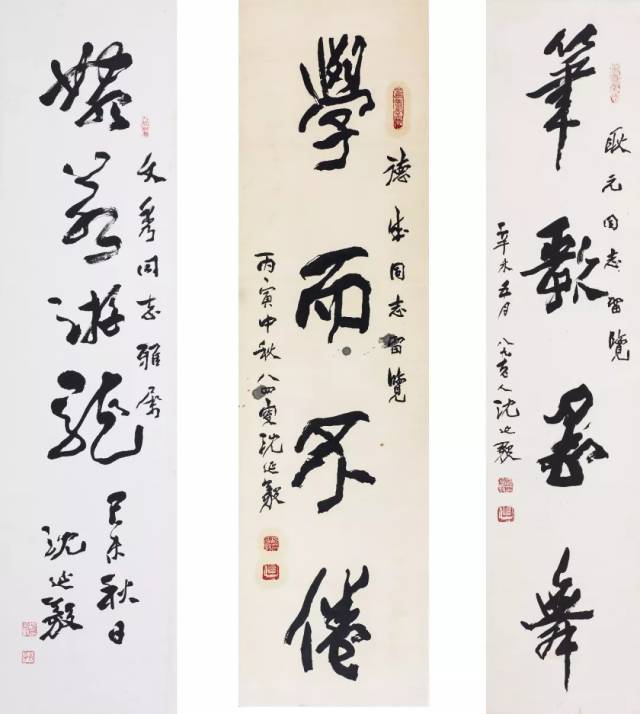 筆歌墨舞
耿元同志留覽
辛未五月 八九老人沈延毅
學而不倦
德同志留覽
丙寅中秋八四叟沈延毅
若游龍
文秀同志雅屬
己未秋日
沈延毅